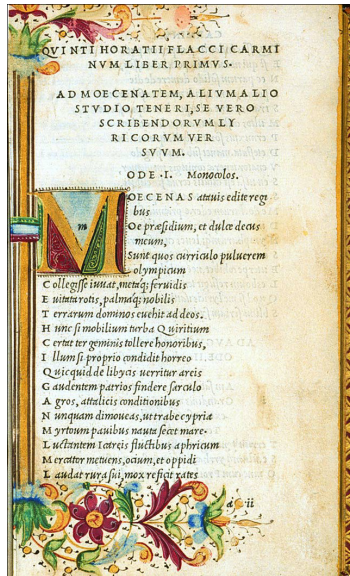 QVINTI HORATII FLACCI CARMI
NVM LIBER PRIMVS.
AD MOECENATEM, ALIVM ALIO
STVDIO TENERI, SE VERO
SCRIBENDORVM LY
RICORVM VER
SVVM.
ODE .I. Monocolos.
M OECENAS atauis edite regi
bus
Oe præsidium, et dulce decus
meum,
Sunt quos curriculo puluerem
olympicum
C ollegisse iuuat, metaq; feruidis
E uitata rotis, palmaq; nobilis
T errarum dominos euehit ad deos.
H unc si mobilium turba Quiritium
C ertat ter geminis tollere honoribus,
I llum si proprio condidit horreo
Q uicquid de libycis uerritur areis
G audentem patrios findere sarculo
A gros, attalicis conditionibus
N unquam dimoueas, ut trabe cypria
M yrtoum pauibus nauta secet mare.
L uctantem Icareis fluctibus aphricum
M ercator metuens, ocium, et oppidi
L audat rura sui, mox reficit rates
a ii